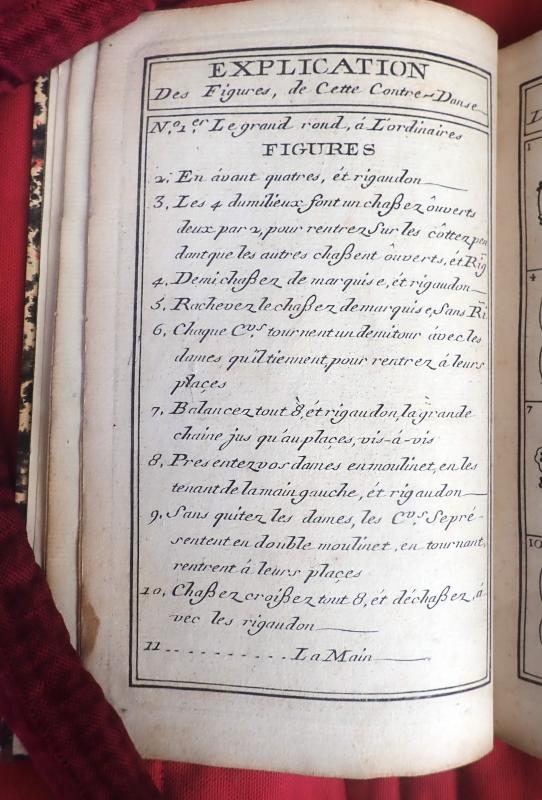 EXPLICATION
Des Figures, de Cette Contre-Danse
N.º 1.er Le grand rond, á L'ordinaires
FIGURES
2. En ávant quatres, ét rigaudon
3. Les 4 dumilieux font un chaßez ôuverts
deux par 2, pour rentrez Sur les côttez pen
dantque les autres chaßent ôuverts, ét Rig
4. Demi chaßez de marquise, ét rigaudon
5. Rachevez le chaßez demarquise, Sans Ri
6. Chaque C.vs tournent un demitour ávec les
dames qu'il tiennent, pour rentrez á leurs
plaçes
7. Balancez tout 8, ét rigaudon, la grande
chaine jus qu'au plaçes, vis-á-vis
8. Presentez vos dames en moulinet, en les
tenant de la main gauche, ét rigaudon
9. Sans quitez les dames, les C.vs Sepré-
sentent en double moulinet, en tournant,
rentrent á leurs plaçes
10. Chaßez croißez tout 8, ét déchaßez, á
vec les rigaudon
11 .......... La Main
1
4
7
10